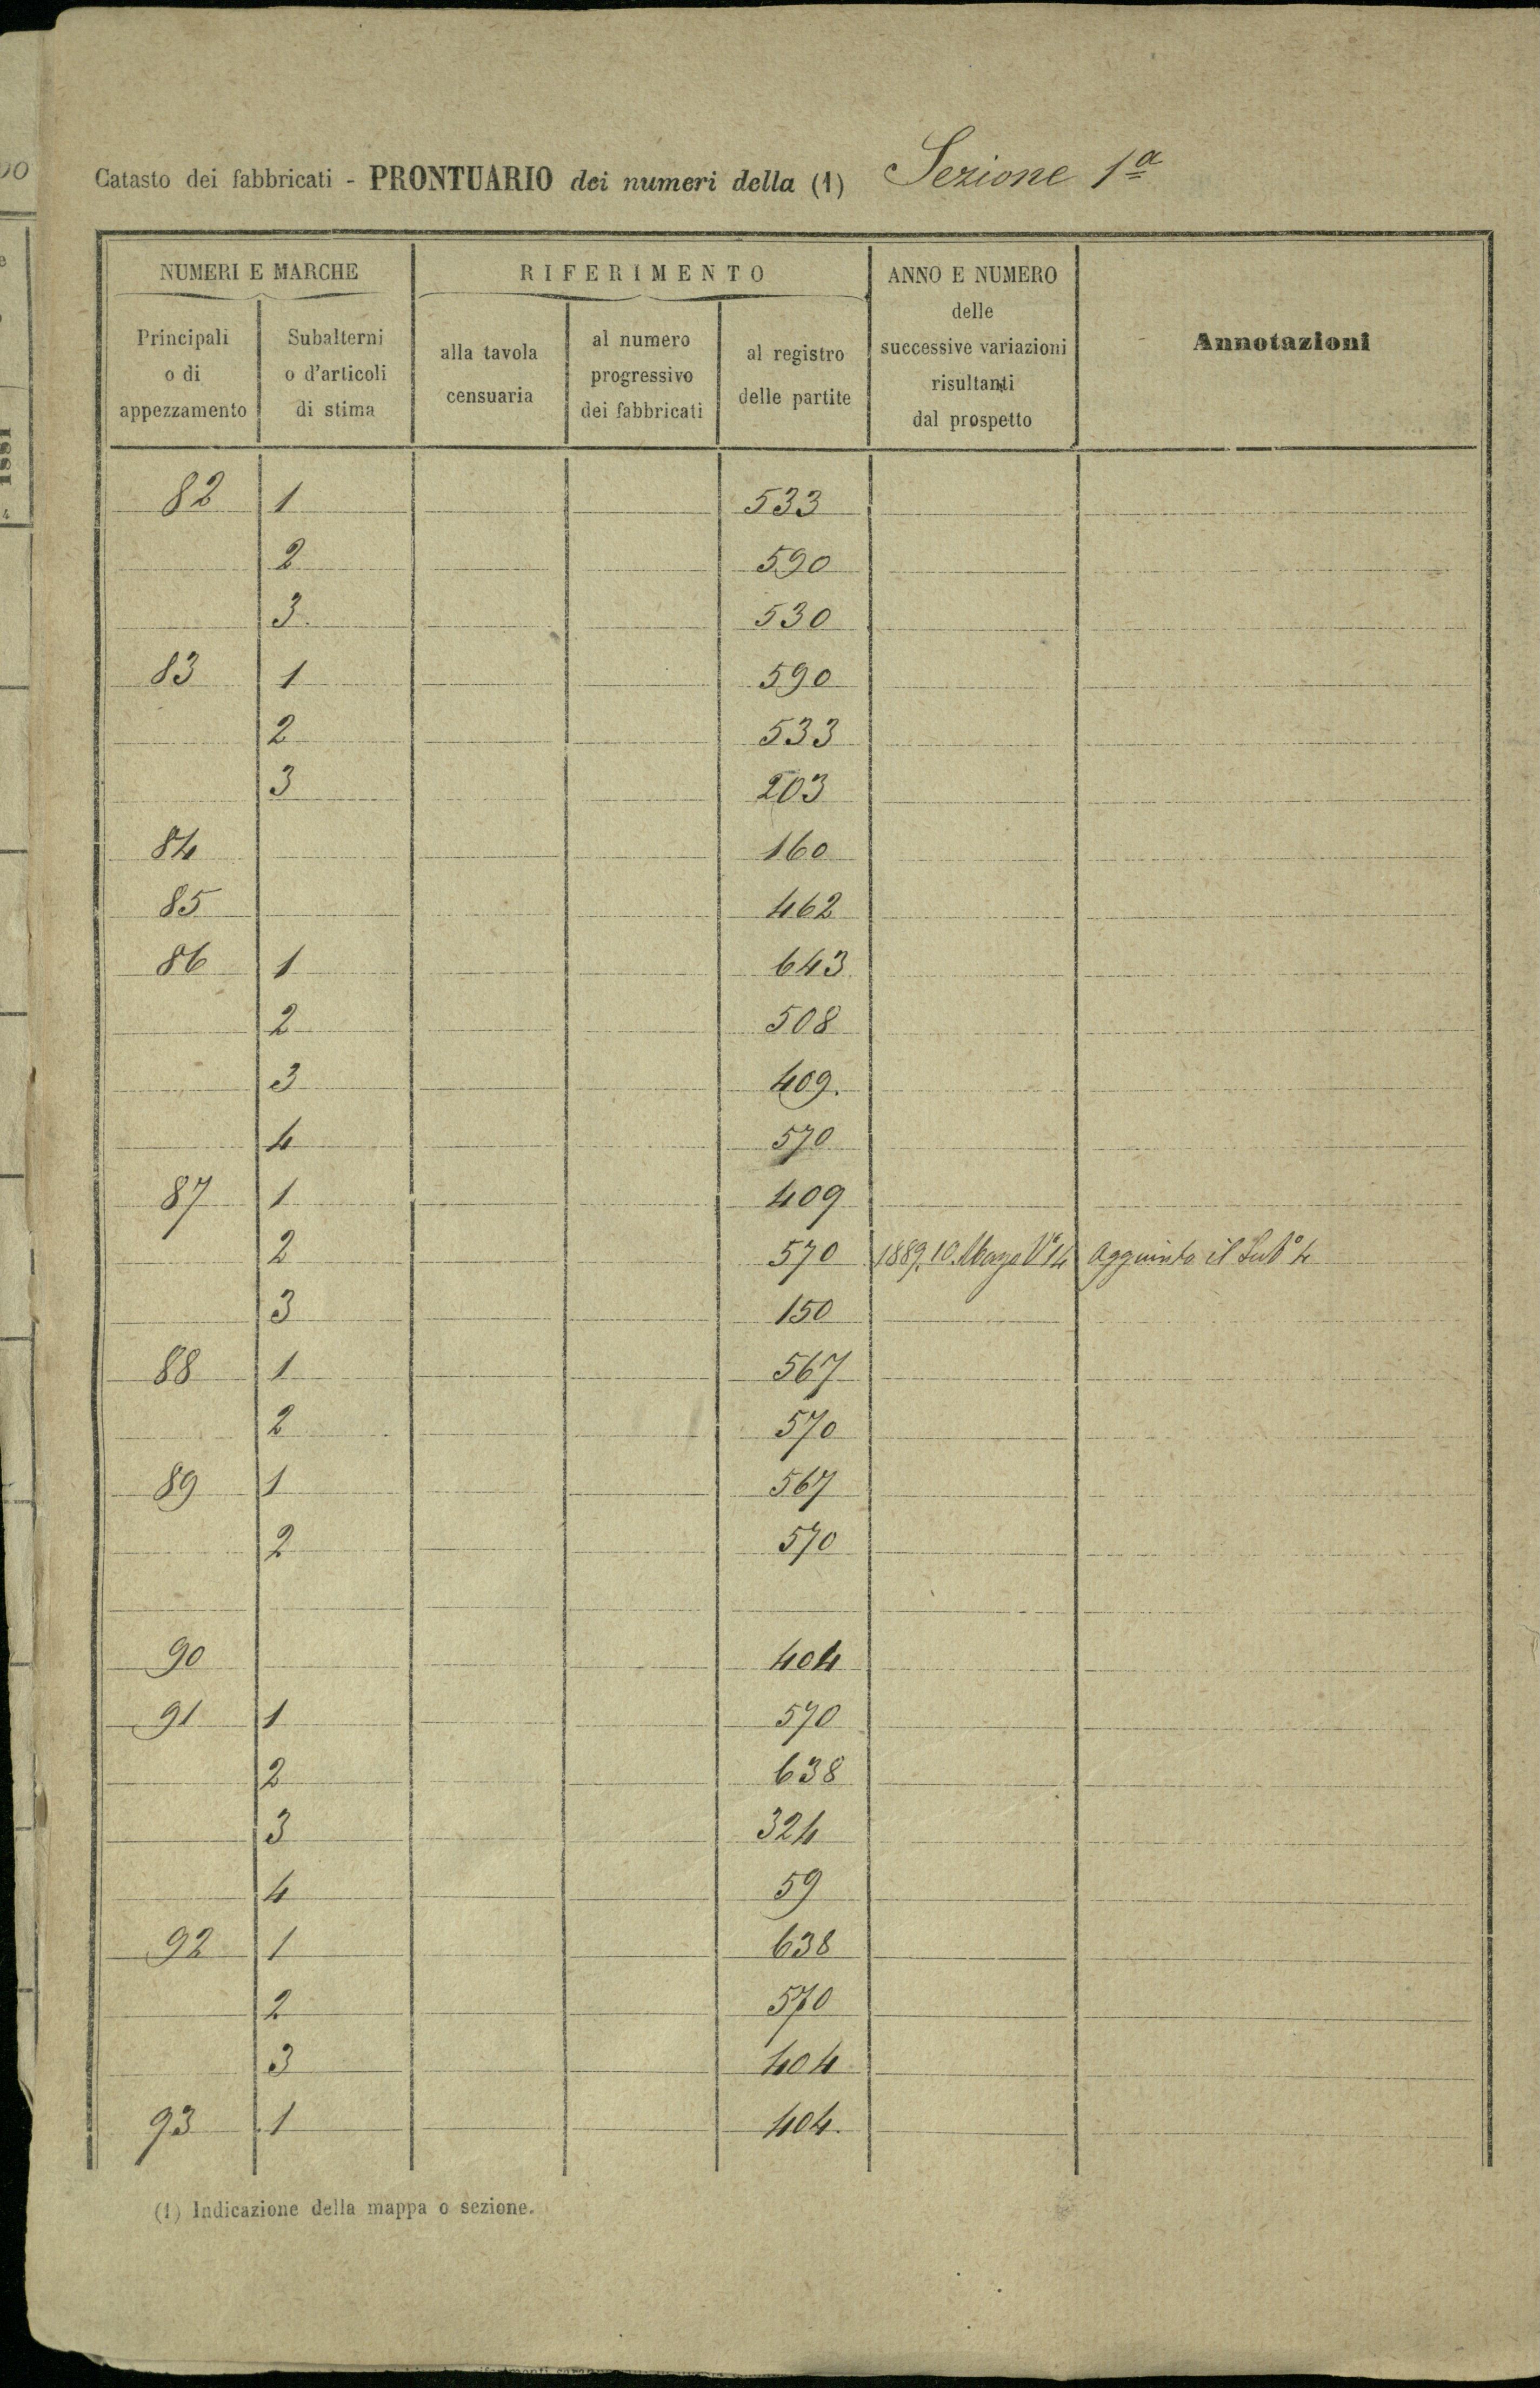 Catasto dei fabbricati - PRONTUARIO dei numeri della (1) Sezione 1ª
NUMERI E MARCHE
RIFERIMENTO
ANNO E NUMERO
delle
successive variazioni
risultanti
dal prospetto
Annotazioni
Principali
o di
appezzamento
Subalterni
o d'articoli
di stima
alla tavola
censuaria
al numero
progressivo
dei fabbricati
al registro
delle partite
82 1 533
2 590
3. 530
83 1 590
2 533
3 203
84 160
85 462
86 1 643
2 508
3 409.
4 570
87 1 409
2 570 1889. 10. Marzo V° 14 Aggiunto il Sub° 4
3 150
88 1 567
2 570
89 1 567
2 570
90 404
91 1 570
2 638
3 324
4 59
92 1 638
2 570
3 404
93 1 404.
(1) Indicazione della mappa o sezione.